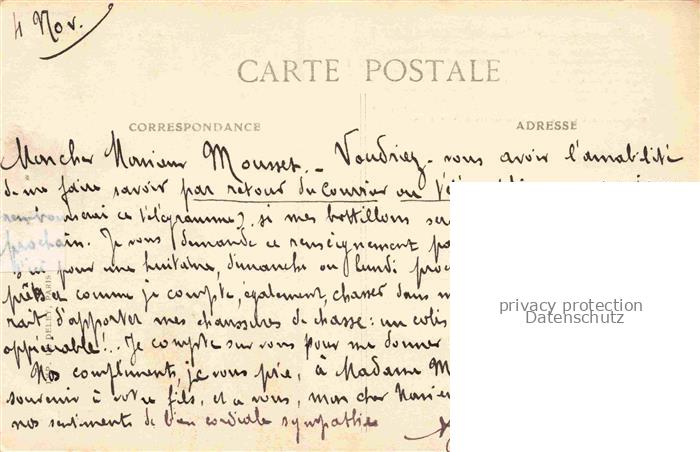 4 Nov.
CARTE POSTALE
CORRESPONDANCE
ADRESSE
Mon cher Monsieur Mousset. _ Voudriez-vous avoir l'amabilité
de me faire savoir par retour du courrier ou
serai ce télégramme), si mes bottillons
prochain. Je vous demande ce renseignement
pour une huitaine, dimanche ou lundi
prêts et comme je compte, également, chasser dans
rait d'apporter mes chaussures de chasse : un colis
appréciable!.. Je compte sur vous pour me donner
Nos compliments, je vous prie, à Madame M
souvenir à votre fils, et à vous, mon cher
nos sentiments de bien cordiale sympathie
privacy protection
Datenschutz